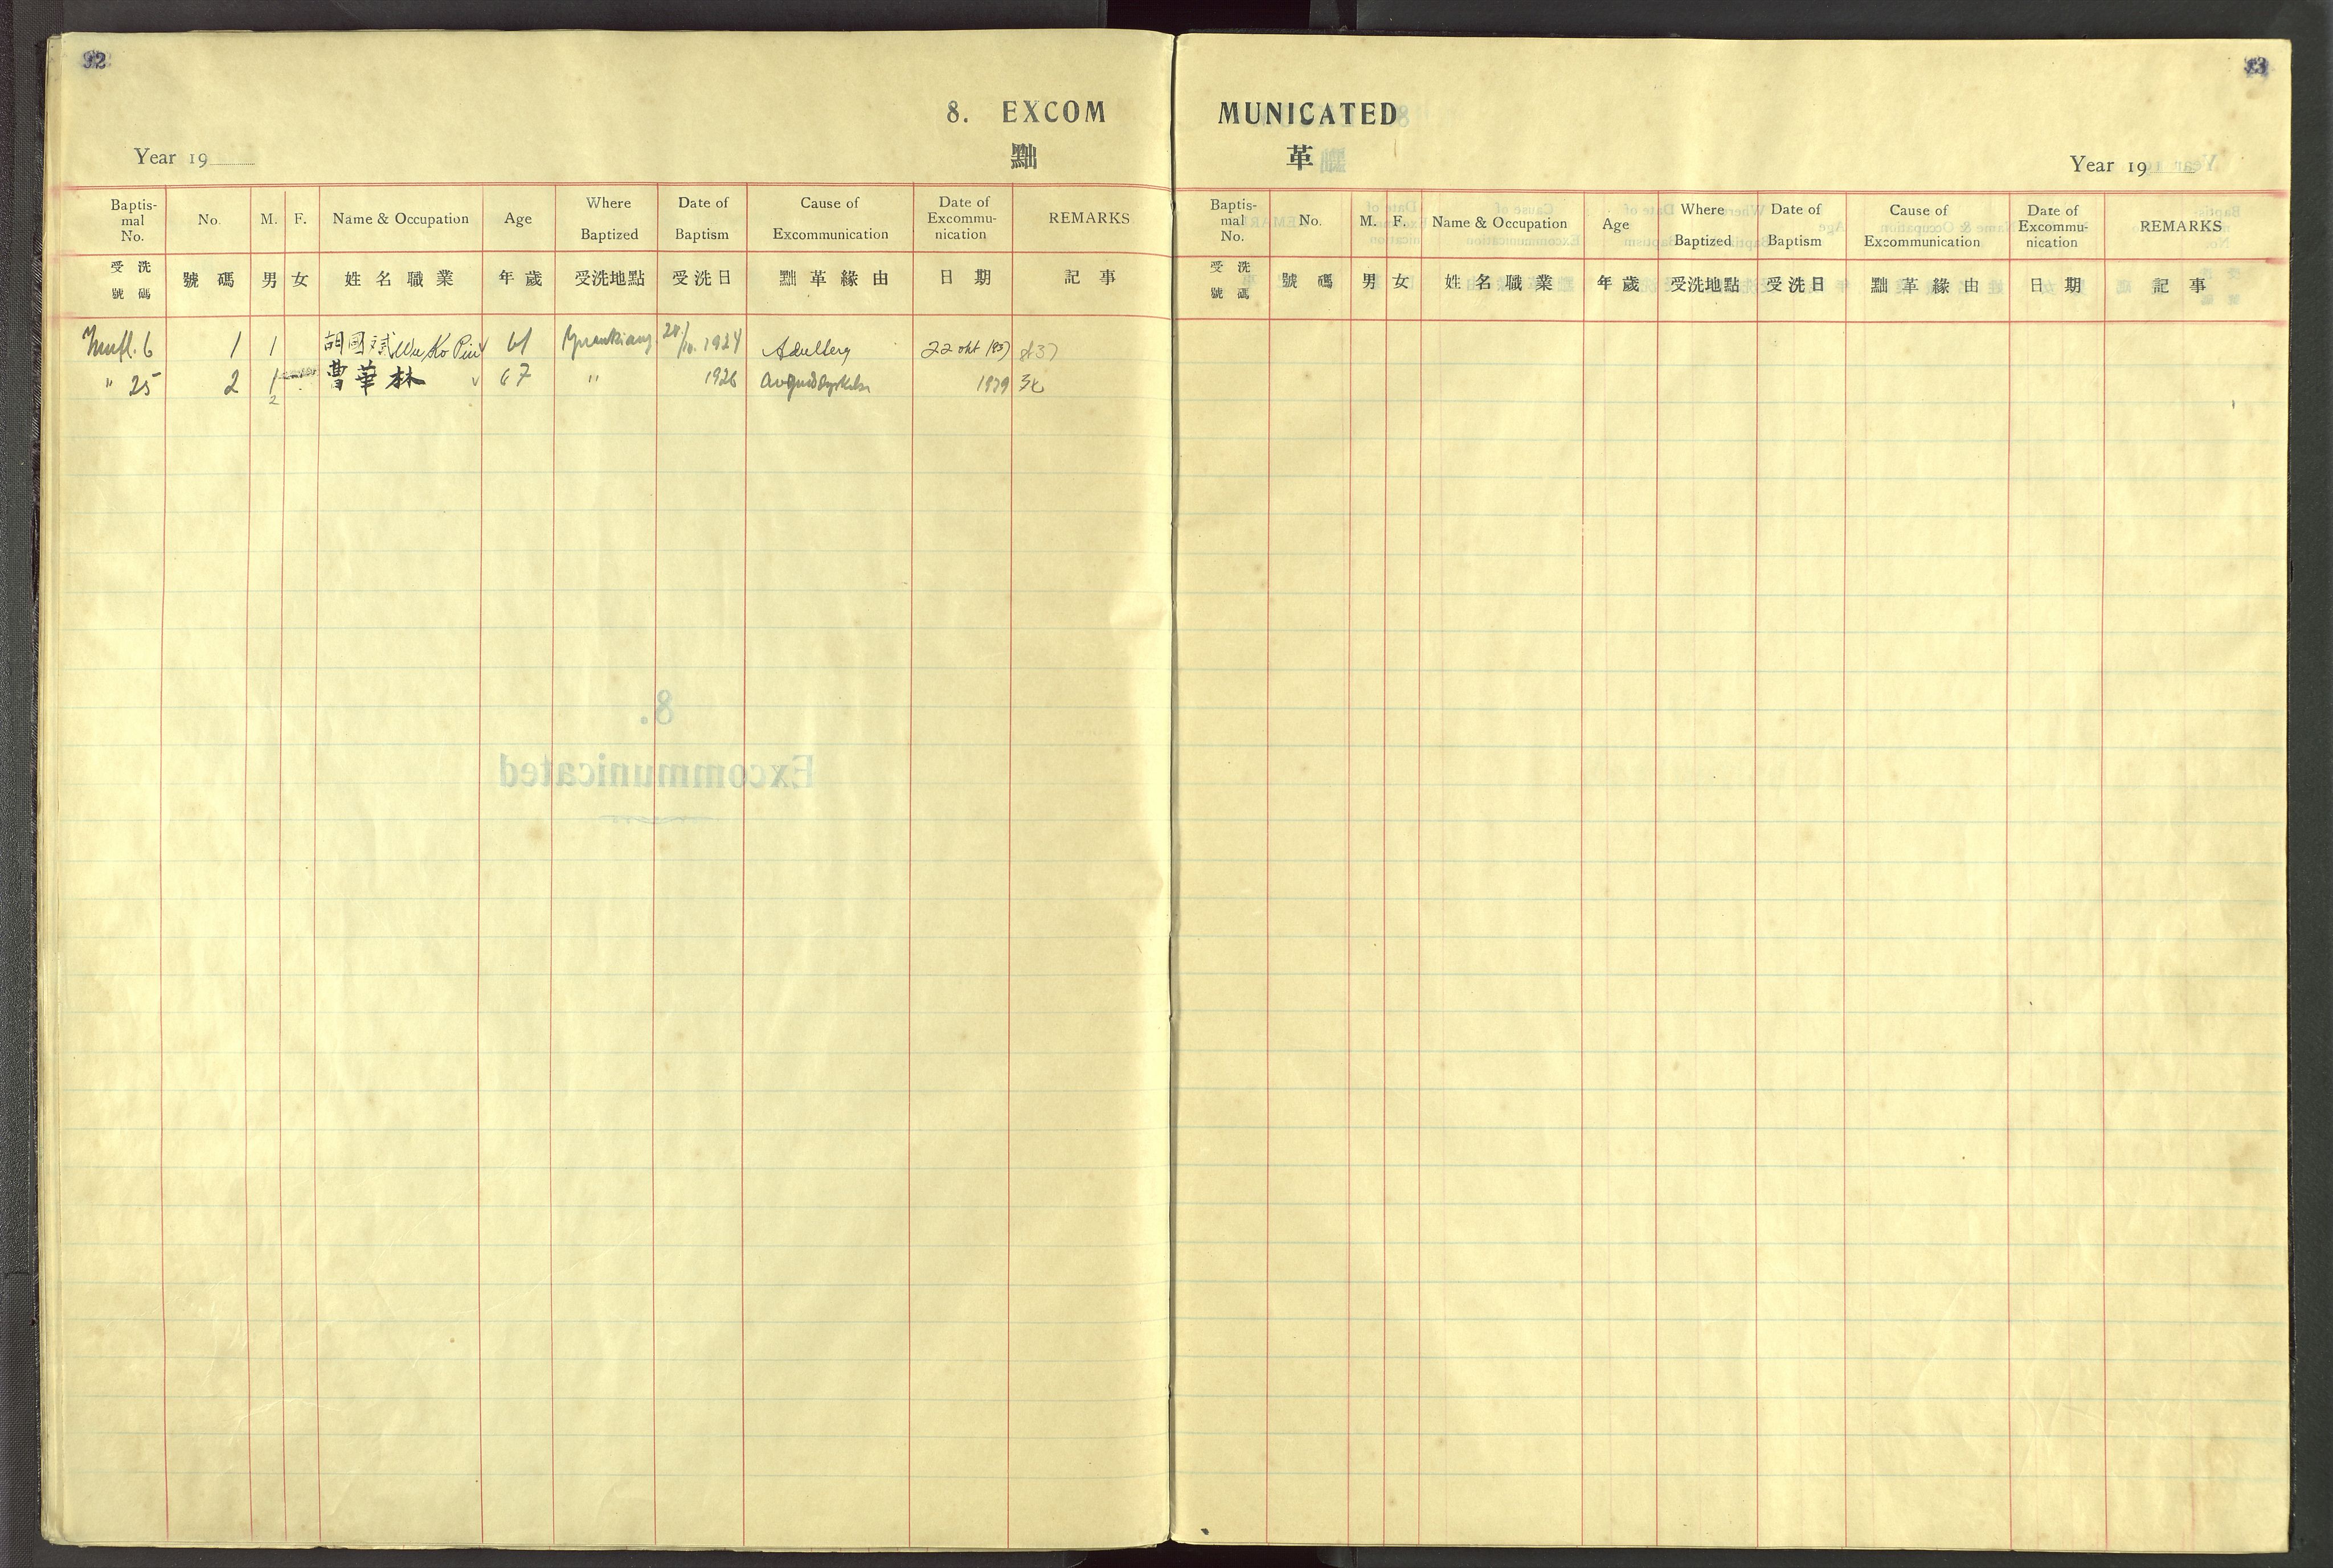 92
8. EXCOM
Year 19
黜
Baptis-mal No. No. M. F. Name & Occupation Age Where Baptized Date of Baptism Cause of Excommunication Date of Excommu-nication REMARKS
受洗號碼 號碼 男 女 姓名職業 年歲 受洗地點 受洗日 黜革緣由 日期 記事
6 1 1 胡國斌 Wu Ko Pin 61 1924 22 okt
" 25 2 1 曹華林 67 " 1926 1939
2
93
MUNICATED
革
Year 19
Baptis-mal No. No. M. F. Name & Occupation Age Where Baptized Date of Baptism Cause of Excommunication Date of Excommu-nication REMARKS
受洗號碼 號碼 男 女 姓名職業 年歲 受洗地點 受洗日 黜革緣由 日期 記事